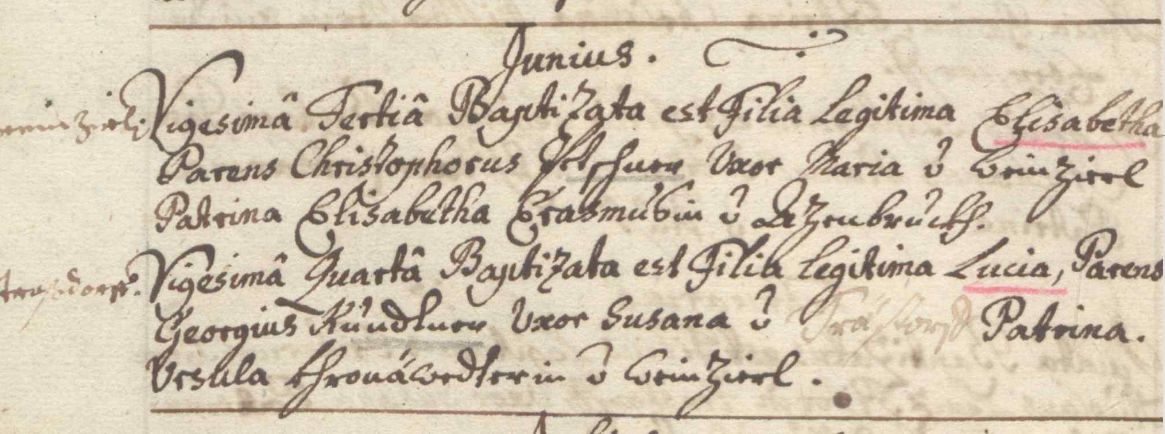 Junius.
Vigesimâ Tertiâ Baptizata est Filia Legitima Elisabetha
weinzierl: Parens Christophorus Uxor Maria v weinzierl
Patrina Elisabetha Erasmusin v Azenbruckh.
Vigesimâ Quartâ Baptizata est Filia legitima Lucia, Parens
Georgius Kündtner Uxor Susana v Patrina.
Ursula v weinzierl.